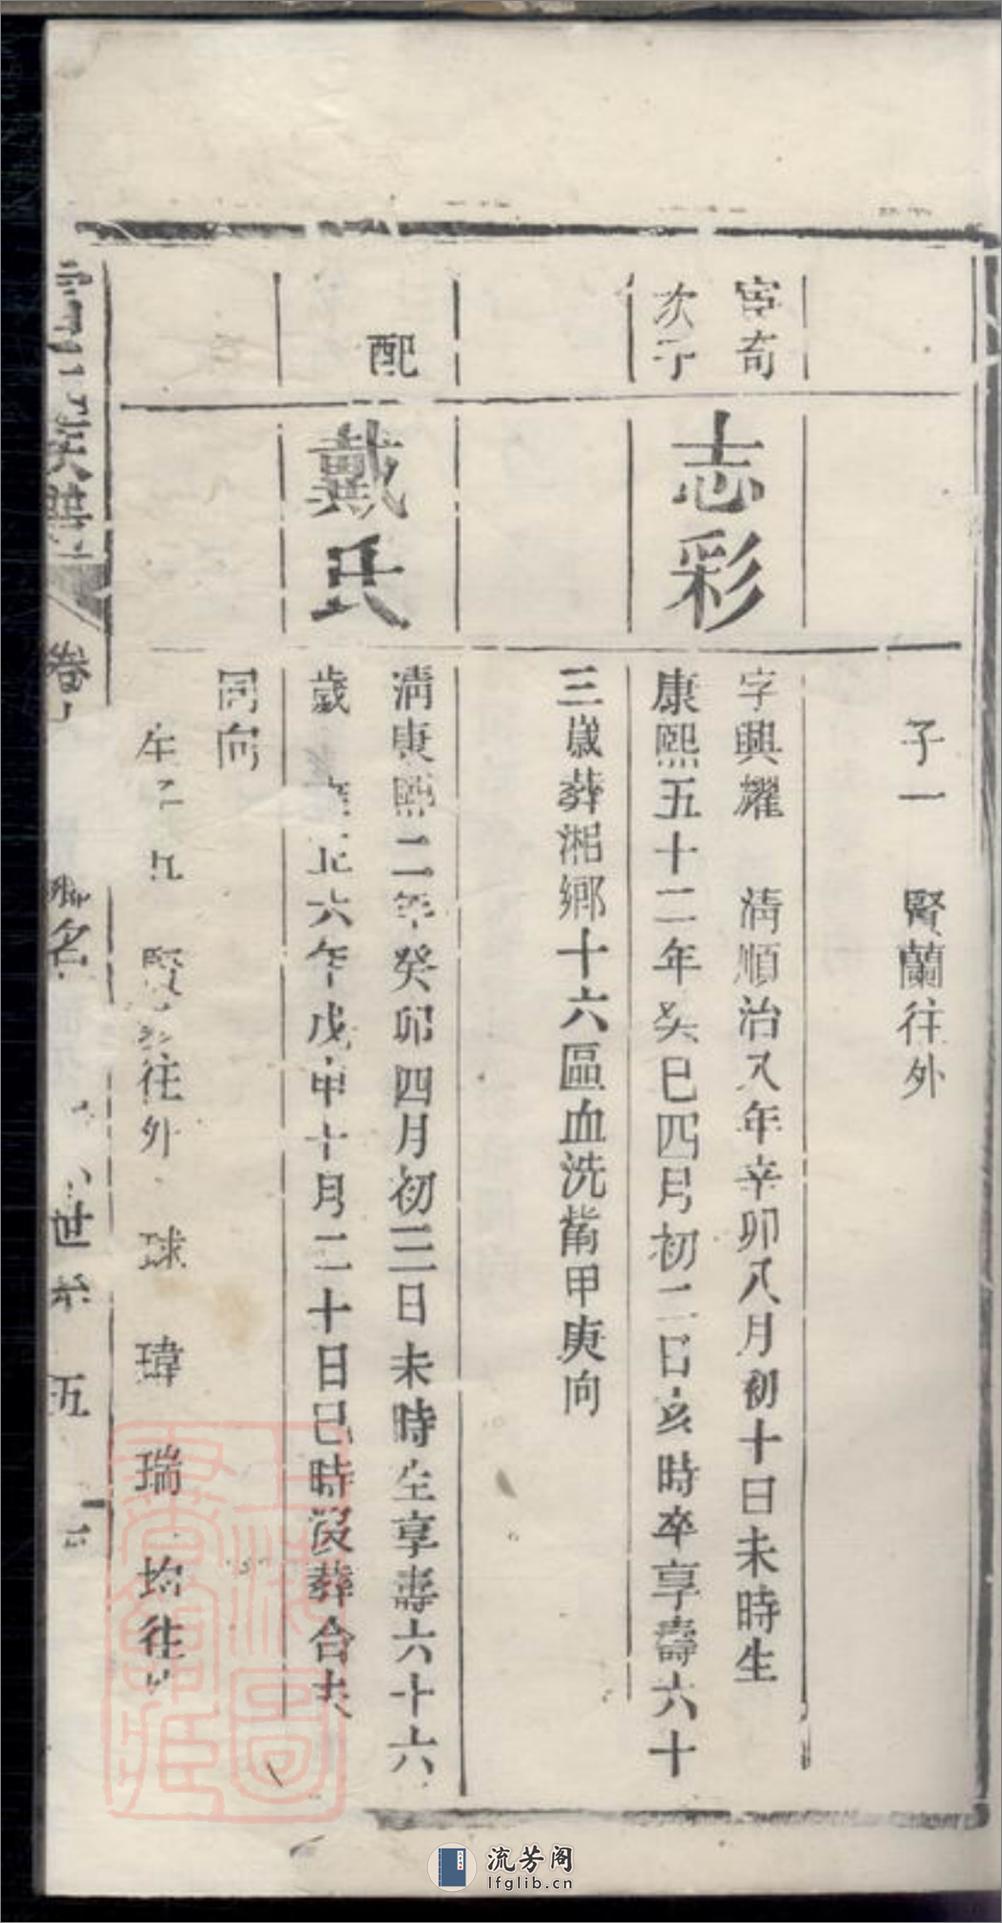 子一　賢蘭往外
宰奇
次子
志彩
字興耀　清順治八年辛卯八月初十日未時生
康熙五十二年癸巳四月初二日亥時卒享壽六十
三歲葬湘鄉十六區血洗嘴甲庚向
配
戴氏
清康熙二年癸卯四月初三日未時生享壽六十六
歲　六年戊申十月二十日巳時沒葬合夫
同向
往外　球　瑋　瑞　均往
族譜
卷
名
世系　五
上海圖書館藏
流芳阁
lfglib.cn